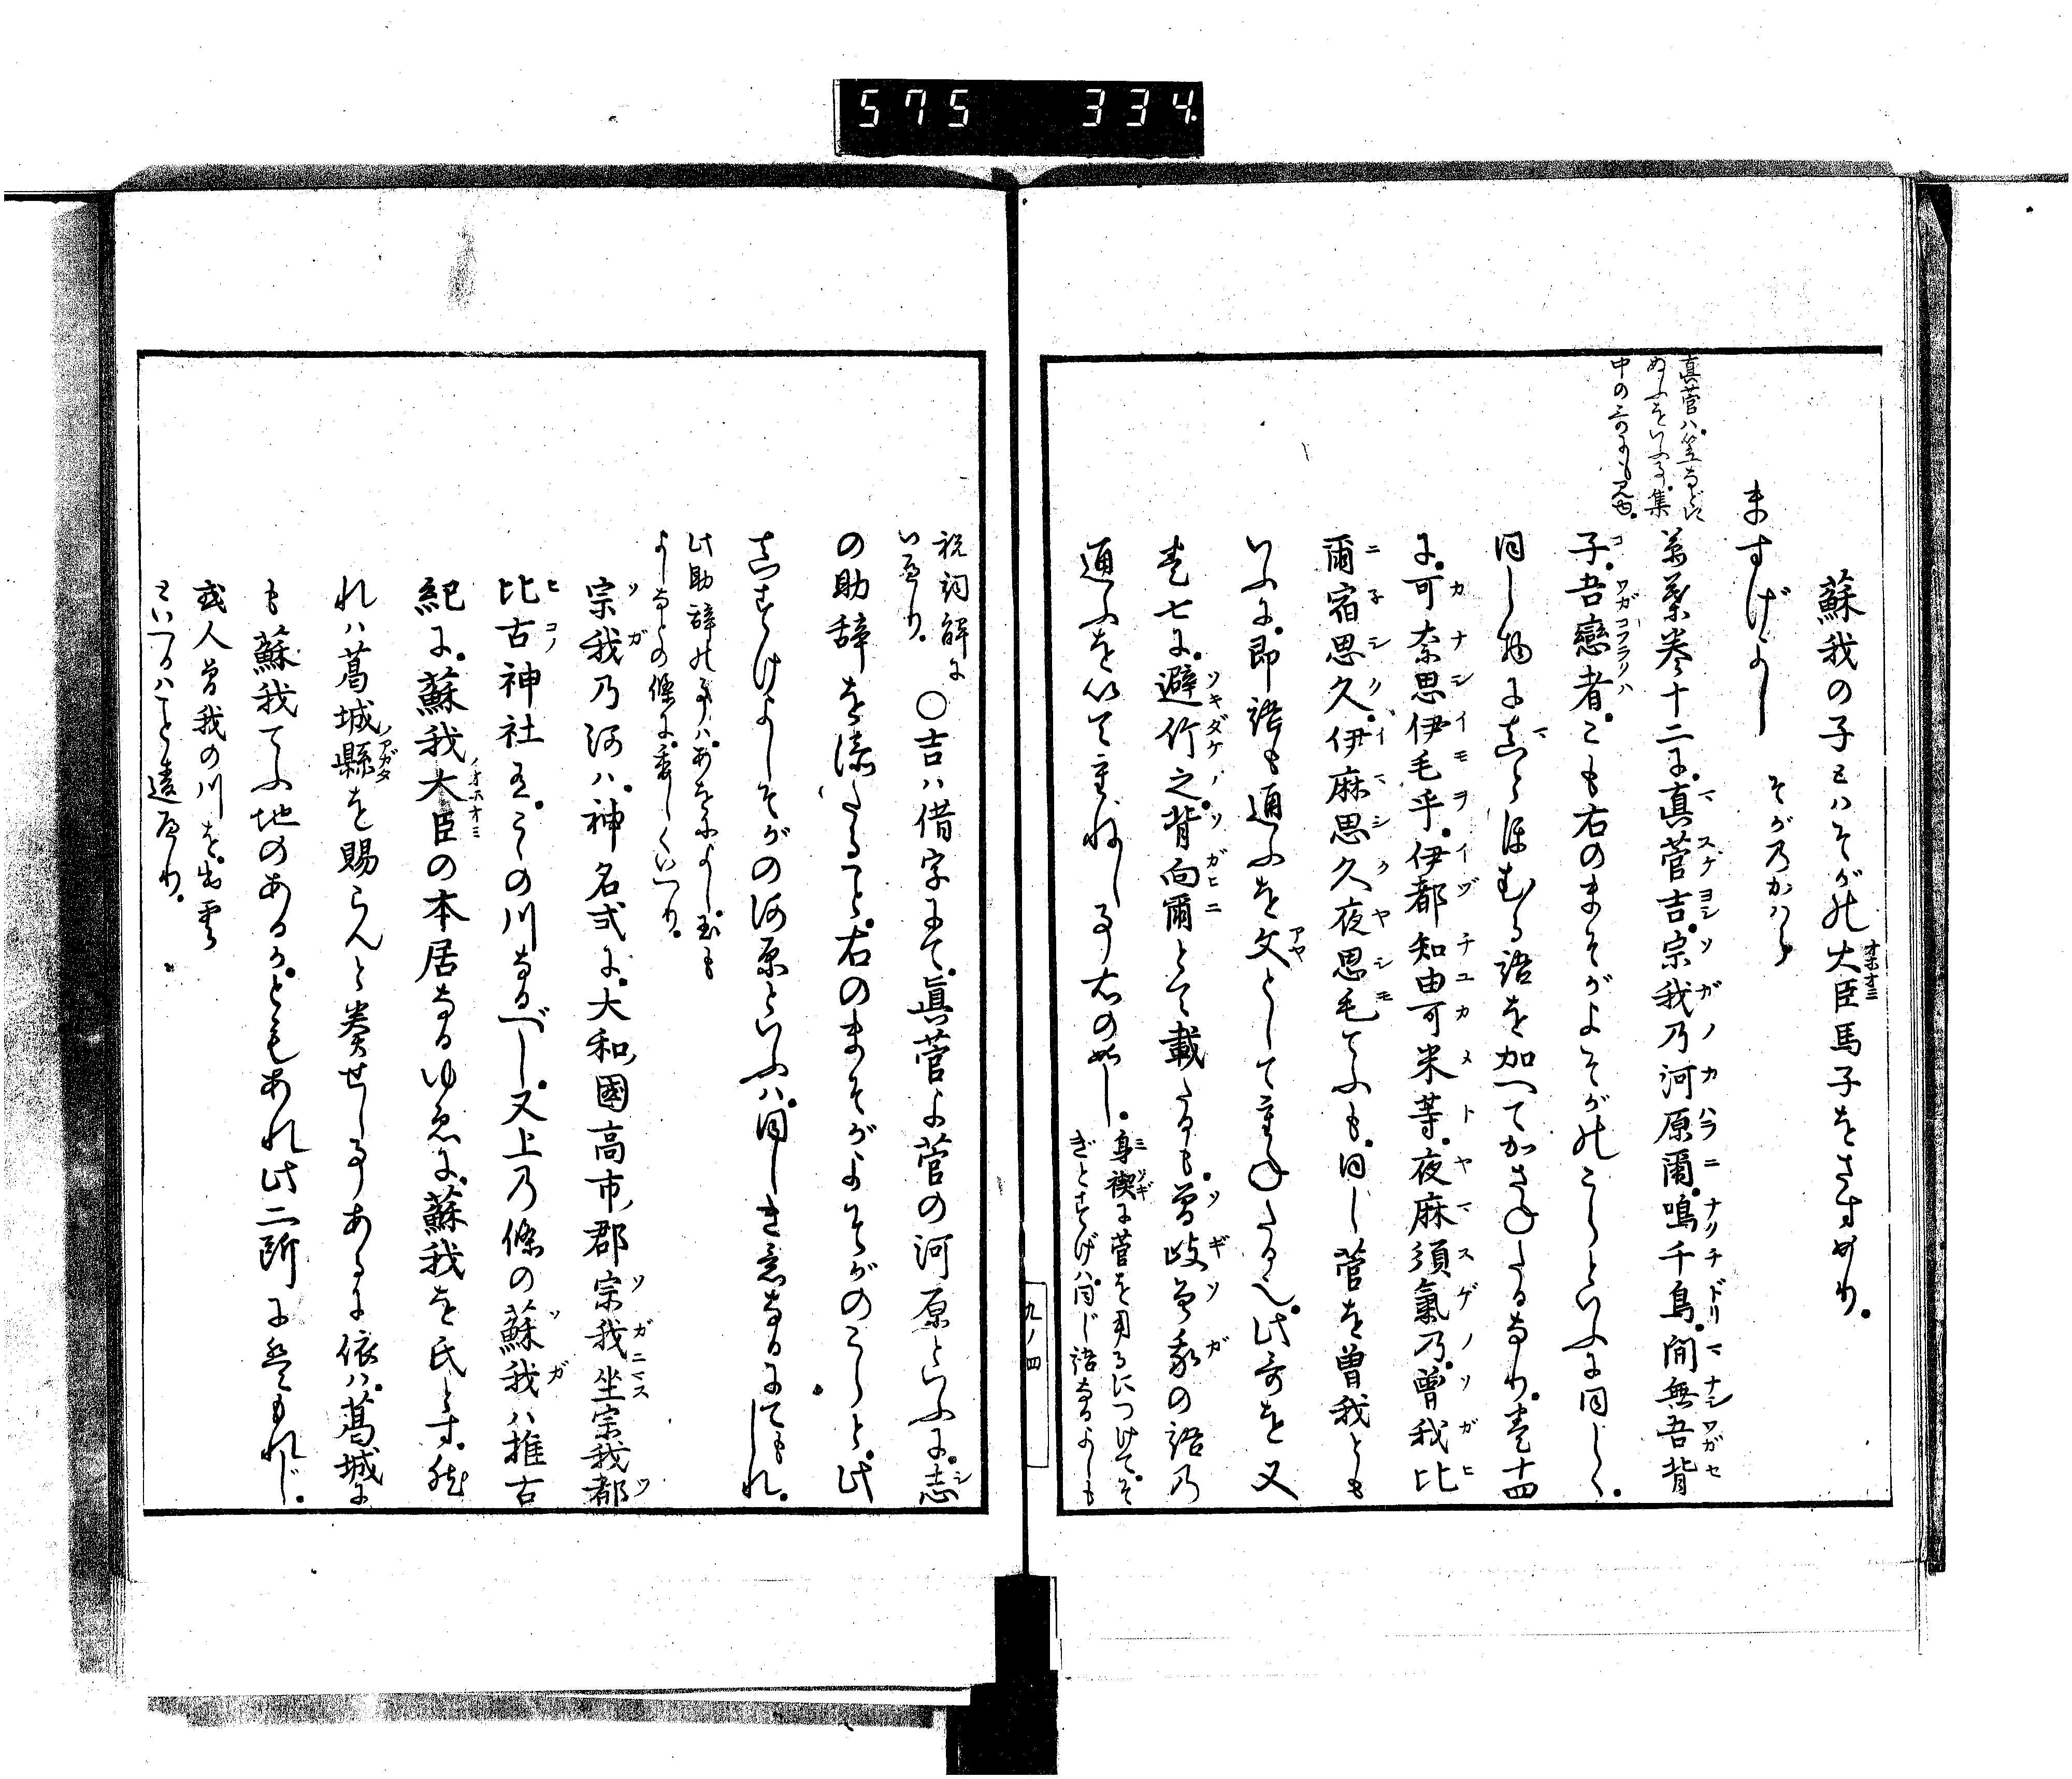 575 334
蘇我の子らハそがの大臣馬子をさすめり。
ますげよし そがのかハら
真菅ハ笠などに
ぬふをいふ事。集
中の哥にも見ゆ。
萬葉巻十二に。真菅吉。宗我乃河原爾。鳴千鳥。間無吾背
子。吾戀者。こも右のまそがよそがのこらといふに同じく。
同し物に真とほむる語を加へてかさねたるなり。巻十四
に。可奈思伊毛乎。伊都知由可米等。夜麻須氣乃。曽我比
爾宿思久。伊麻思久夜思毛てふも。同し菅を曽我とも
いふに。即語も通ふを文として重ねたる也。此哥を又
巻七に。避竹之。背向爾とて載たるも。曽岐曽我の語乃
通ふを以て重ねし事右の如し。
身禊に菅を用るにつけて。そ
ぎとすげハ。同じ語なるよしも
九ノ四
祝詞解に
いへり。
〇吉ハ借字にて。真菅よ菅の河原といふに。志
の助辞を添たること。右のまそがよそがのこらと。此
ますげよしそがの河原といふハ。同しき意なるにてしれ。
此助辞の事ハ。あをによし。玉も
よしなどの條に。委しくいへり。
宗我乃河ハ。神名式に。大和國高市郡宗我坐宗我都
比古神社在。こゝの川なるべし。又上乃條の蘇我ハ推古
紀に。蘇我大臣の本居なるゆゑに。蘇我を氏とす。然
れハ葛城縣を賜らんと奏せし事あるに依ハ。葛城に
も蘇我てふ地のあるか。ともあれ此二所にはもれじ。
或人曽我の川を。出雲
といへるハこと違へり。